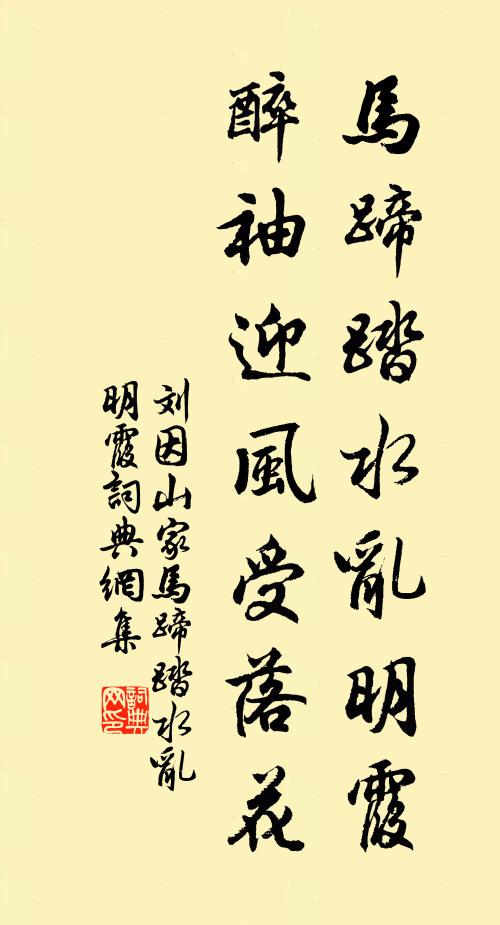 馬蹄踏水亂明霞
醉袖迎風受落花
刘因山家馬蹄踏水亂
明霞詞典網集
詞典網印